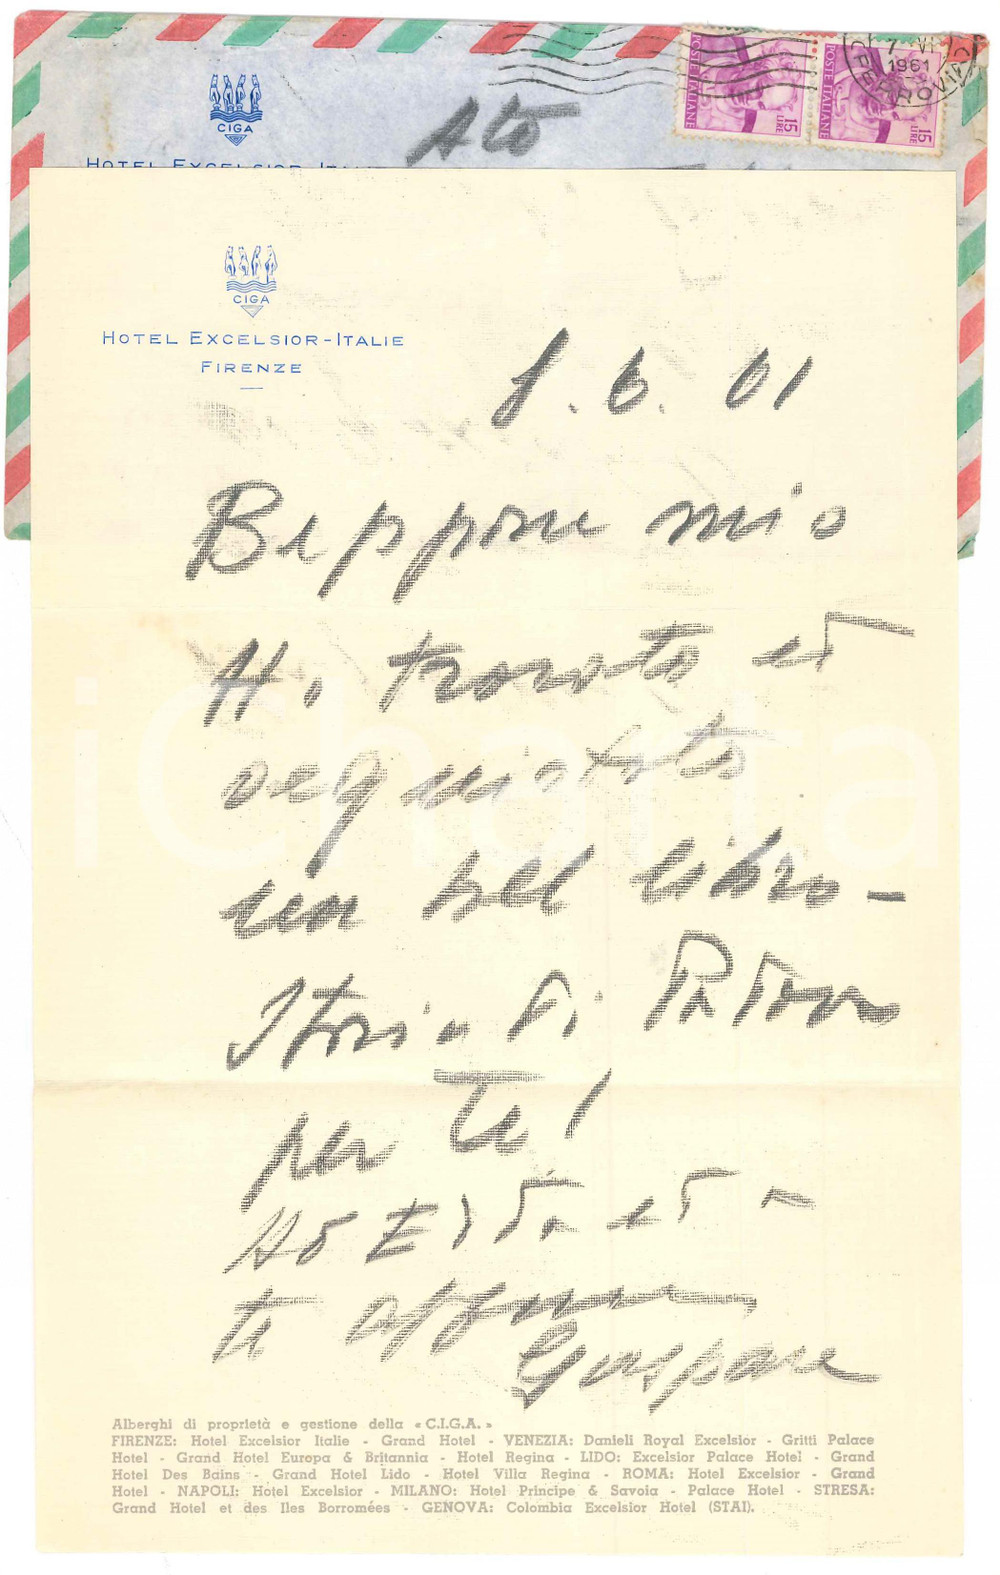 CIGA
HOTEL EXCELSIOR-ITALIE
POSTE ITALIANE
15 LIRE
POSTE ITALIANE
15 LIRE
7 VI
1961
FERROVIA
CIGA
HOTEL EXCELSIOR-ITALIE
FIRENZE
6. 61
Beppone mio
Ho trovato et
acquistato
un bel libro -
Storia di Padova
per te!
te appena
Gaspare
iCharta
Alberghi di proprietà e gestione della « C.I.G.A. »
FIRENZE: Hotel Excelsior Italie - Grand Hotel - VENEZIA: Danieli Royal Excelsior - Gritti Palace
Hotel - Grand Hotel Europa & Britannia - Hotel Regina - LIDO: Excelsior Palace Hotel - Grand
Hotel Des Bains - Grand Hotel Lido - Hotel Villa Regina - ROMA: Hotel Excelsior - Grand
Hotel - NAPOLI: Hotel Excelsior - MILANO: Hotel Principe & Savoia - Palace Hotel - STRESA:
Grand Hotel et des Iles Borromées - GENOVA: Colombia Excelsior Hotel (STAI).